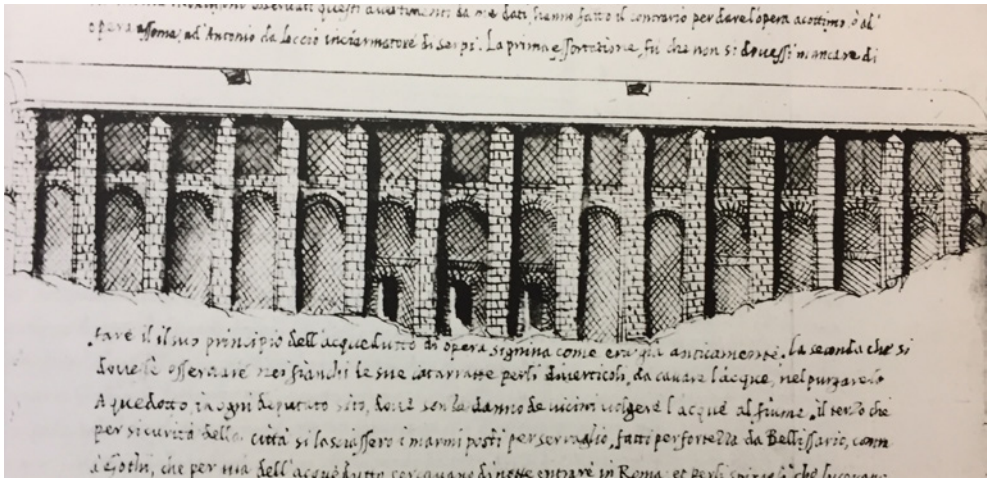 osservati questi avertimenti da me dati, hanno fatto il contrario per dare l'opera a cottimo, ò al'
opera assoma, ad' Antonio da leccio inciarmatore di serpi. La prima essortatione, fù che non si dovessi mancare di
fare il suo principio dell'acquedutto di opera signina come era già anticamente. la seconda che si
dovesse osservare nei fianchi le sue catarratte per li diverticoli, da cavare l'acque, nel purgare lo
Aquedotto, in ogni deputato sito, dove senza danno de vicini volgere l'acque al fiume. il terzo che
per sicurtà della città si lasciassero i marmi posti per serraglio, fatti per fortezza da Bellissario, contra
à Gothi, che per via dell'acquedutto cercavano di notte entrare in Roma, et per li che